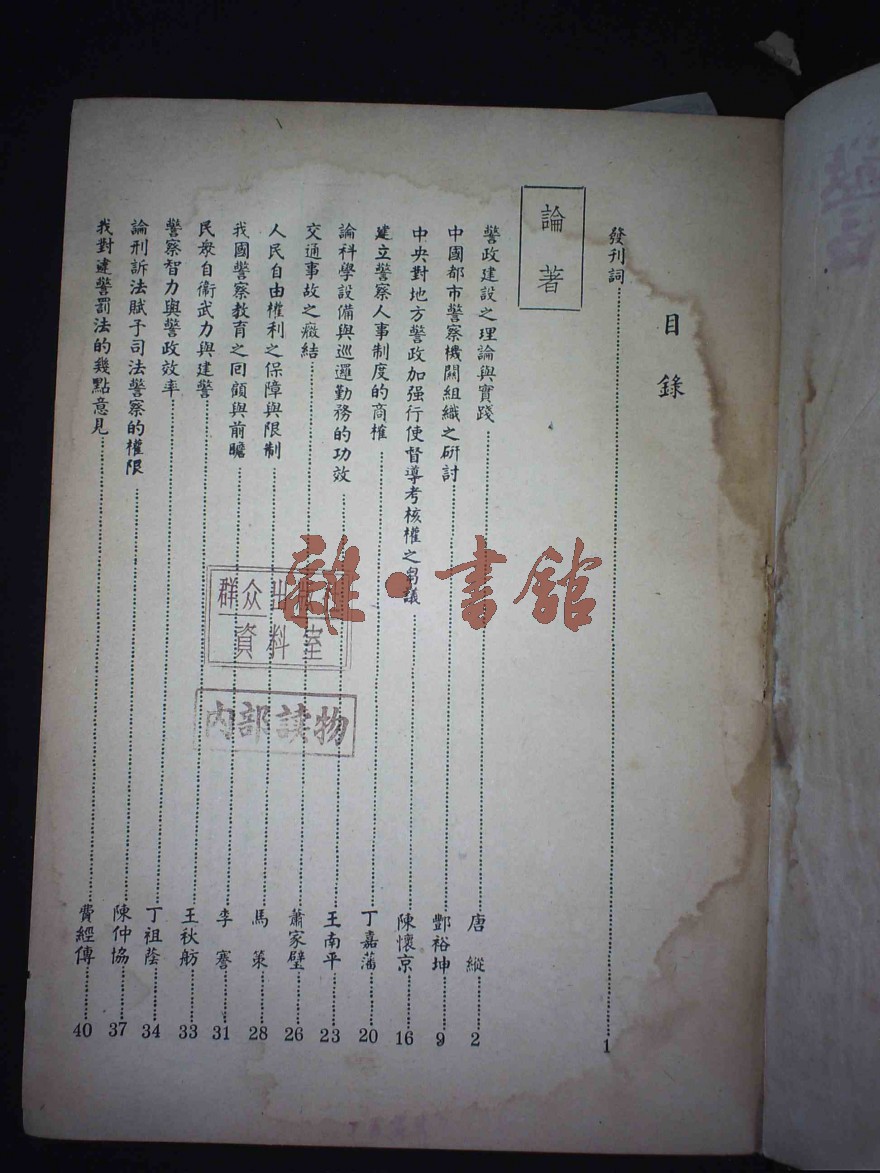 目錄
發刊詞……1
論著
警政建設之理論與實踐……唐縱……2
中國都市警察機關組織之研討……酆裕坤……9
中央對地方警政加强行使督導考核權之芻議……陳懷京……16
建立警察人事制度的商榷……丁嘉藩……20
論科學設備與巡邏勤務的功效……王南平……23
交通事故之癥結……蕭家璧……26
人民自由權利之保障與限制……馬策……28
我國警察教育之回顧與前瞻……李謇……31
民衆自衞武力與建警……王秋舫……33
警察智力與警政效率……丁祖蔭……34
論刑訴法賦予司法警察的權限……陳仲協……37
我對違警罰法的幾點意見……費經傳……40
群众出版社
資料室
内部读物
雜·書館